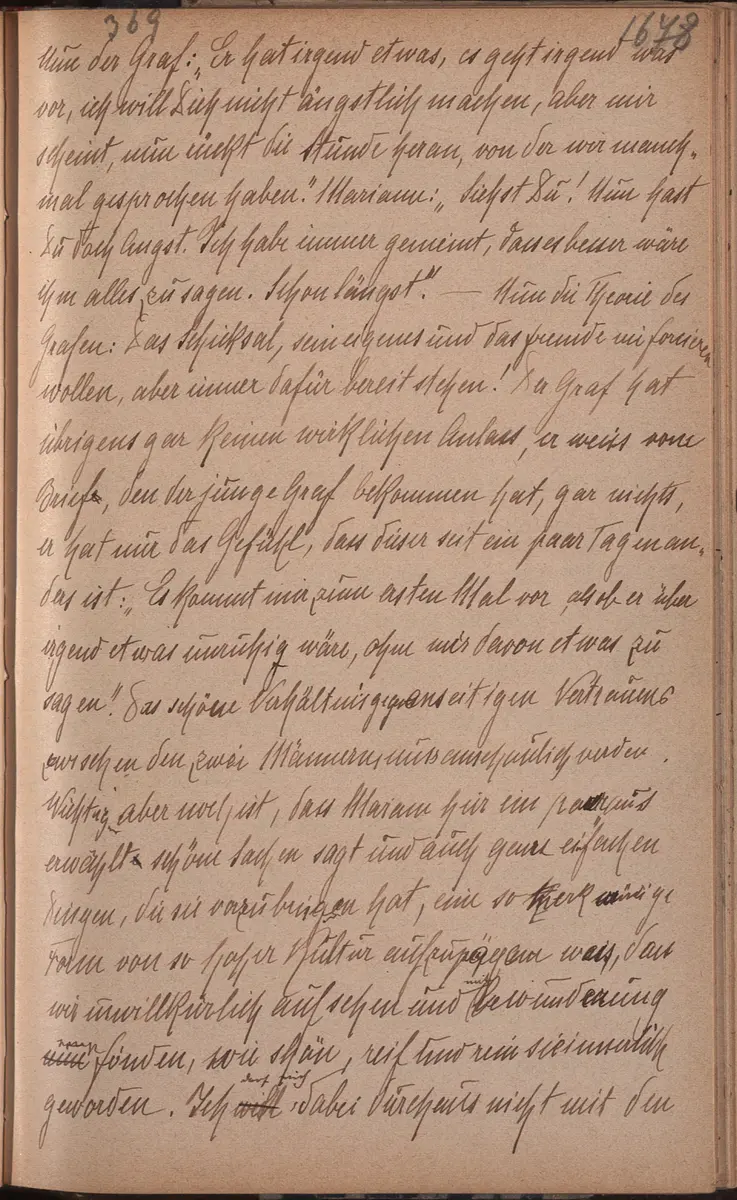 369 1678
Nun der Graf: „Er hat irgend etwas, es geht irgend was
vor, ich will Dich nicht ängstlich machen, aber mir
scheint, nun rückt die Stunde heran, von der wir manch-
mal gesprochen haben." Mariann: „Siehst Du! Nun hast
Du doch Angst. Ich habe immer gemeint, dass es besser wäre
ihm alles zu sagen. Schon längst!" — Nun die Theorie des
Grafen: Das Schicksal, sein eigenes und das fremde nie forcieren
wollen, aber immer dafür bereit stehen! Der Graf hat
übrigens gar keinen wirklichen Anlass, er weiss vom
Brief, den der junge Graf bekommen hat, gar nichts,
er hat nur das Gefühl, dass dieser seit ein paar Tagen an-
ders ist: „Es kommt mir zum ersten Mal vor, als ob er über
irgend etwas unruhig wäre, ohne mir davon etwas zu
sagen". Das schöne Verhältnis gegenseitigen Vertrauens
zwischen den zwei Männern muss anschaulich werden.
Wichtig aber noch ist, dass Mariann hier ein paar aus
erwählt schöne Sachen sagt und auch ganz einfachen
Dingen, die sie vorzubringen hat, eine so merkwürdige
Form von so hoher Kultur aufzuprägen weiss, dass
wir unwillkürlich aufsehen und mit Bewunderung
fänden, wie schön, reif und rein sie innerlich
geworden. Ich darf mich dabei durchaus nicht mit den